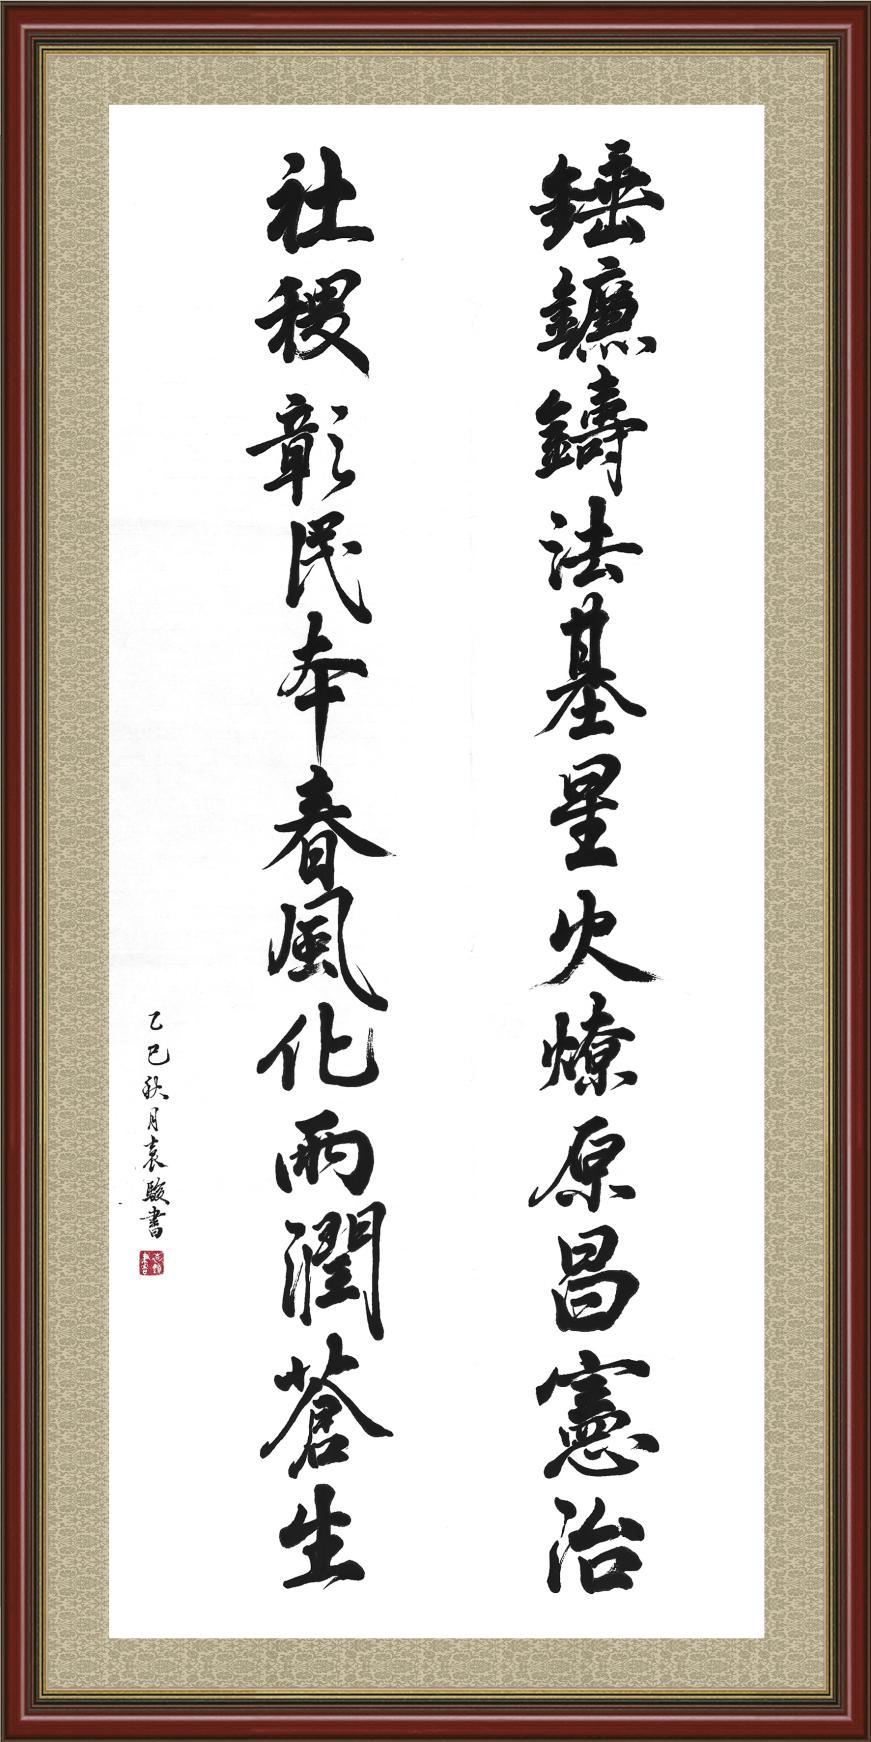 錘鐮鑄法基星火燎原昌憲治
社稷彰民本春風化雨潤蒼生
乙巳秋月袁駿書